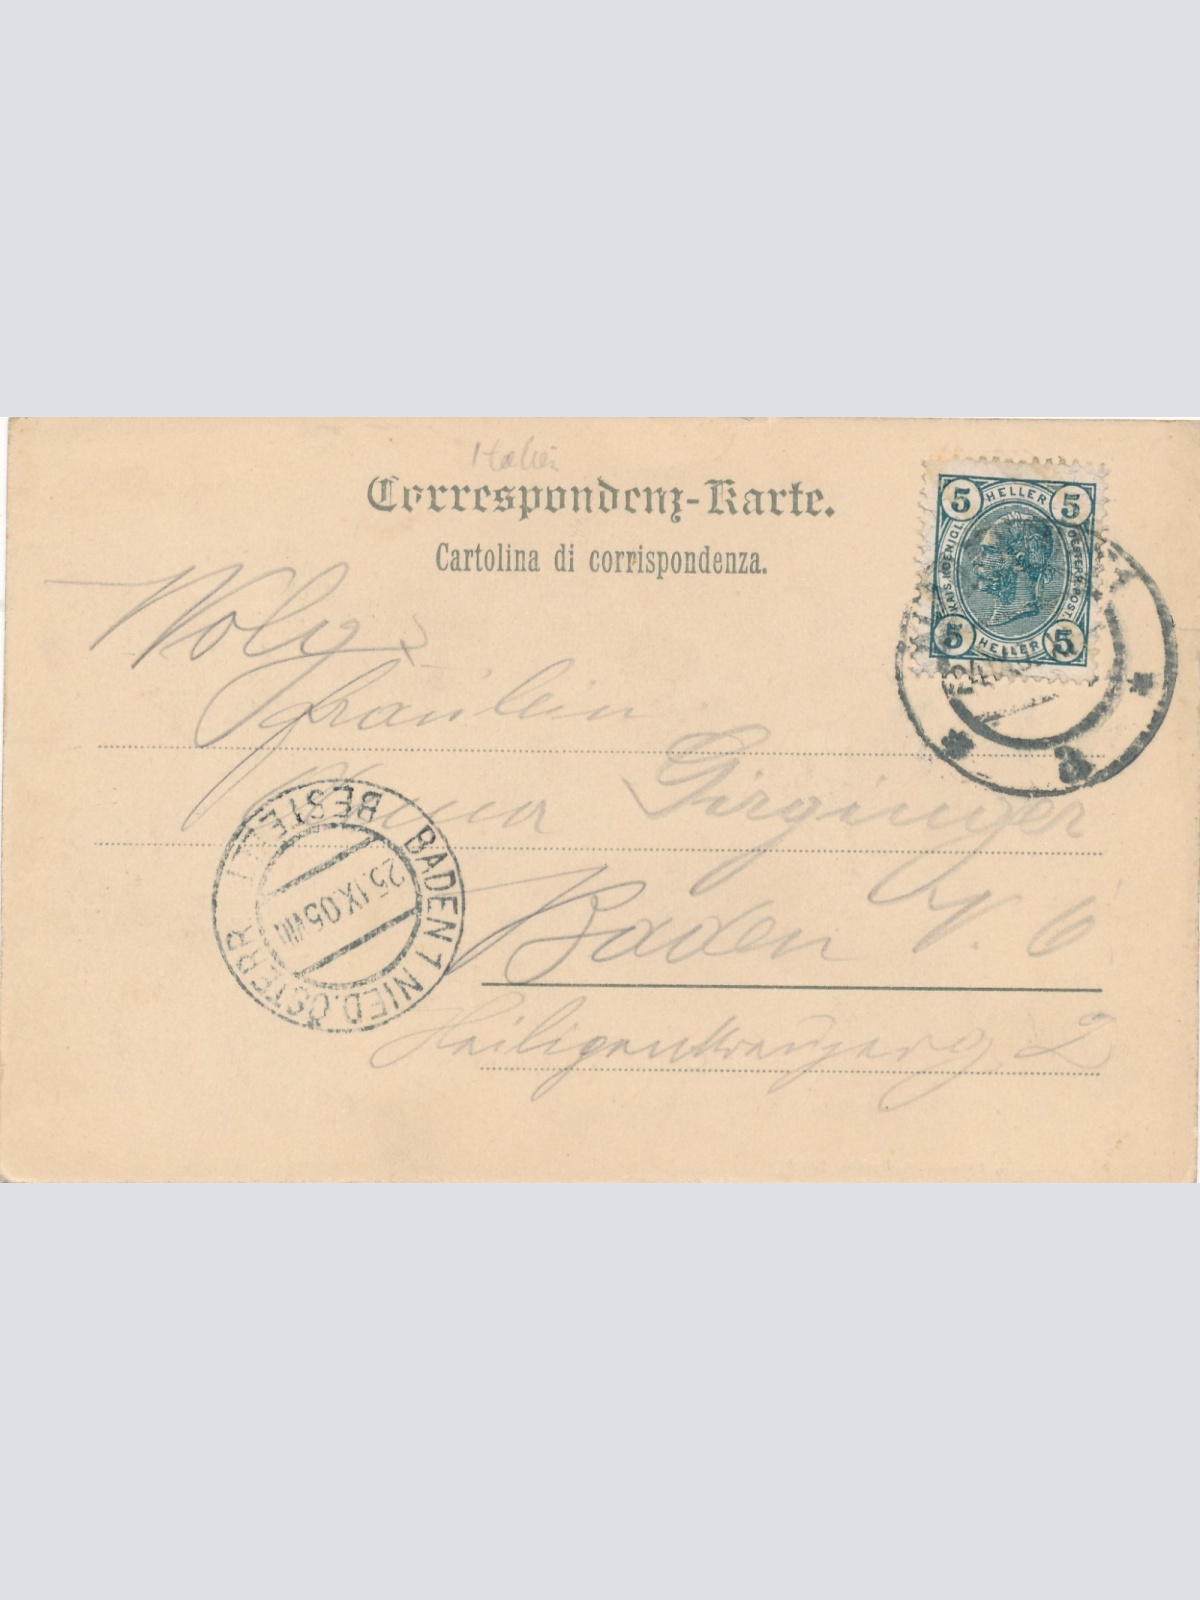 Italien
Correspondenz-Karte.
Cartolina di corrispondenza.
5 HELLER 5
KAIS. KOENIGL. OESTERR. POST.
5 HELLER 5
Wolg.
Fräulein
Anna Girginger
Baden N. Ö
BADEN 1 NIED. ÖSTERR BESTELLT
25.IX.05 VIII
2